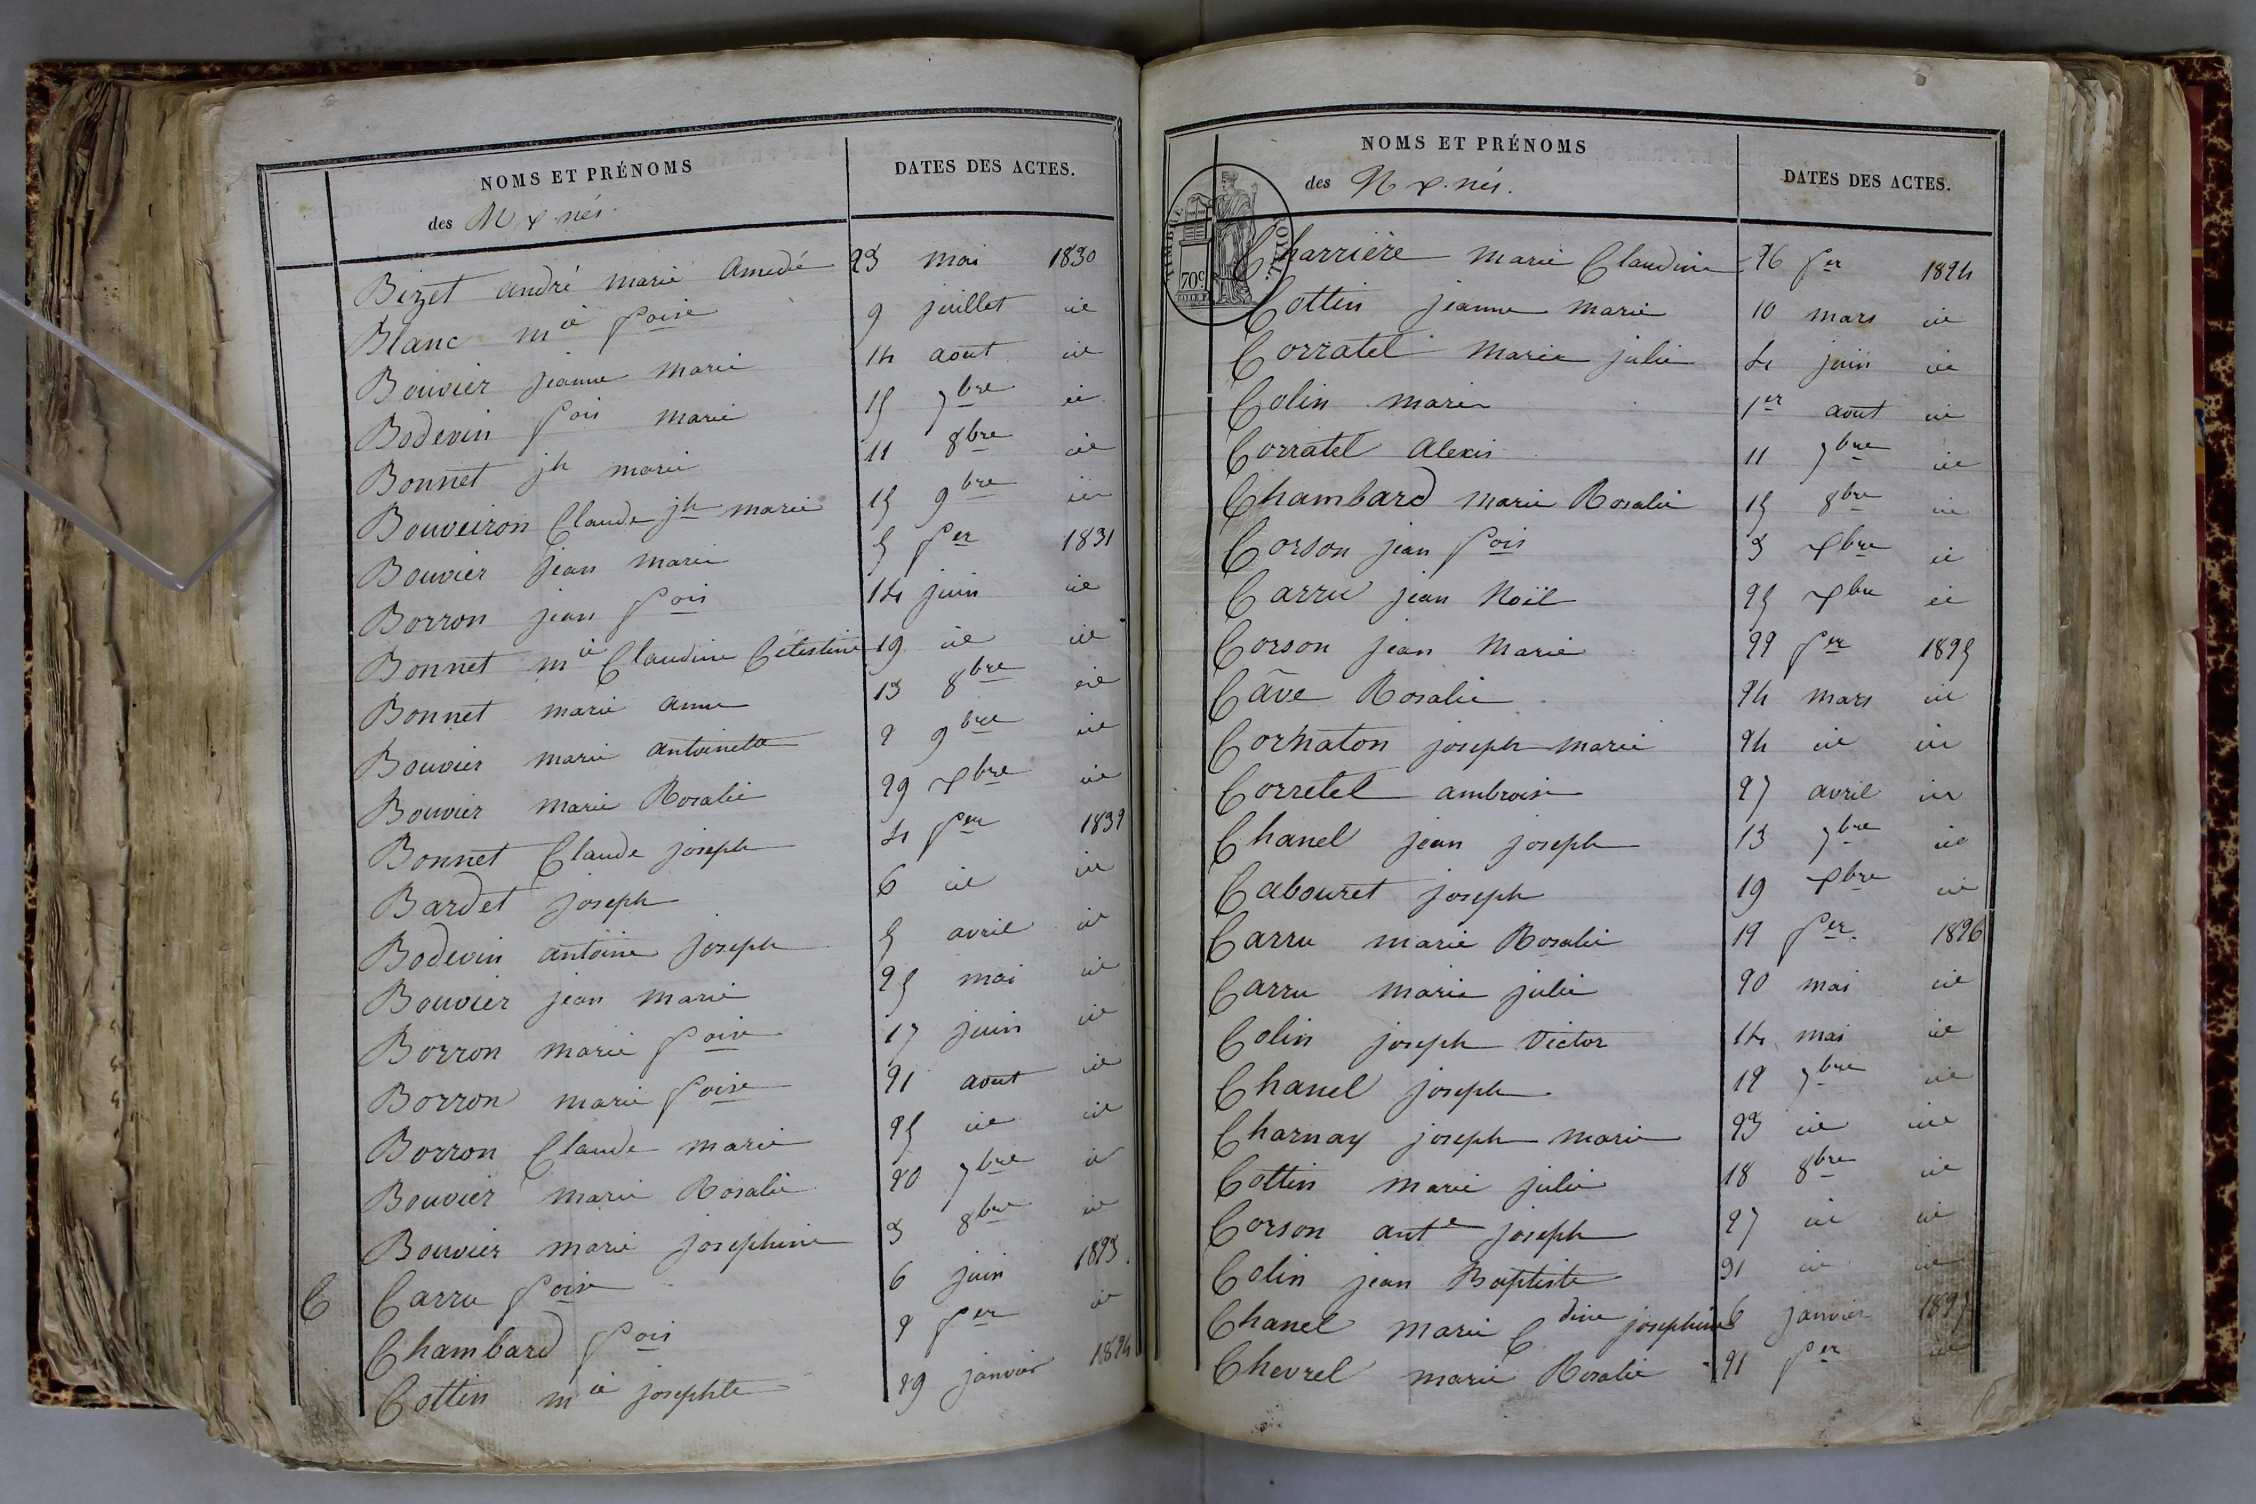 NOMS ET PRÉNOMS DATES DES ACTES.
des N x nés.
Bizet andré marie amedé 23 mai 1830
Blanc mie foise 9 juillet id
Bouvier jeanne marie 14 aout id
Bodevin fois marie 15 7bre id
Bonnet jh marie 11 8bre id
Bouveiron Claude jh marie 15 9bre id
Bouvier jean marie 5 fer 1831
Borron jean fois 14 juin id
Bonnet mie Claudine Célestine 19 id id
Bonnet marie anne 13 8bre id
Bouvier marie antoinette 2 9bre id
Bouvier marie Rosalie 29 xbre id
Bonnet Claude joseph 4 fer 1832
Bardet joseph 6 id id
Bodevin antoine joseph 5 avril id
Bouvier jean marie 25 mai id
Borron marie foise 17 juin id
Borron marie foise 21 aout id
Borron Claude marie 25 id id
Bouvier marie Rosalie 20 7bre id
Bouvier marie josephine 3 8bre id
C Carru foise 6 juin 1823.
Chambard fois 2 fer id
Cottin mie josephte 29 janvier 1824
NOMS ET PRÉNOMS DATES DES ACTES.
des N x. nés.
TIMBRE ROYAL
70c
Charrière marie Claudine 26 fer 1824
Cottin jeanne marie 10 mars id
Corratel marie julie 4 juin id
Colin marie 1er aout id
Corratel alexis 11 7bre id
Chambard marie Rosalie 15 8bre id
Corson jean fois 3 xbre id
Carru jean Noïl 25 xbre id
Corson jean Marie 22 fer 1825
Câve Rosalie 24 mars id
Cornaton joseph marie 24 id id
Corretel ambroise 27 avril id
Chanel jean joseph 13 7bre id
Cabouret joseph 19 xbre id
Carru marie Rosalie 12 fer. 1826
Carru marie julie 20 mai id
Colin joseph Victor 14 mai id
Chanel joseph 12 7bre id
Charnay joseph marie 23 id id
Cottin marie julie 18 8bre id
Corson ante joseph 27 id id
Colin jean Baptiste 31 id id
Chanel marie Cdine josephine 6 janvier 1827
Chevrel marie Rosalie 21 fer id